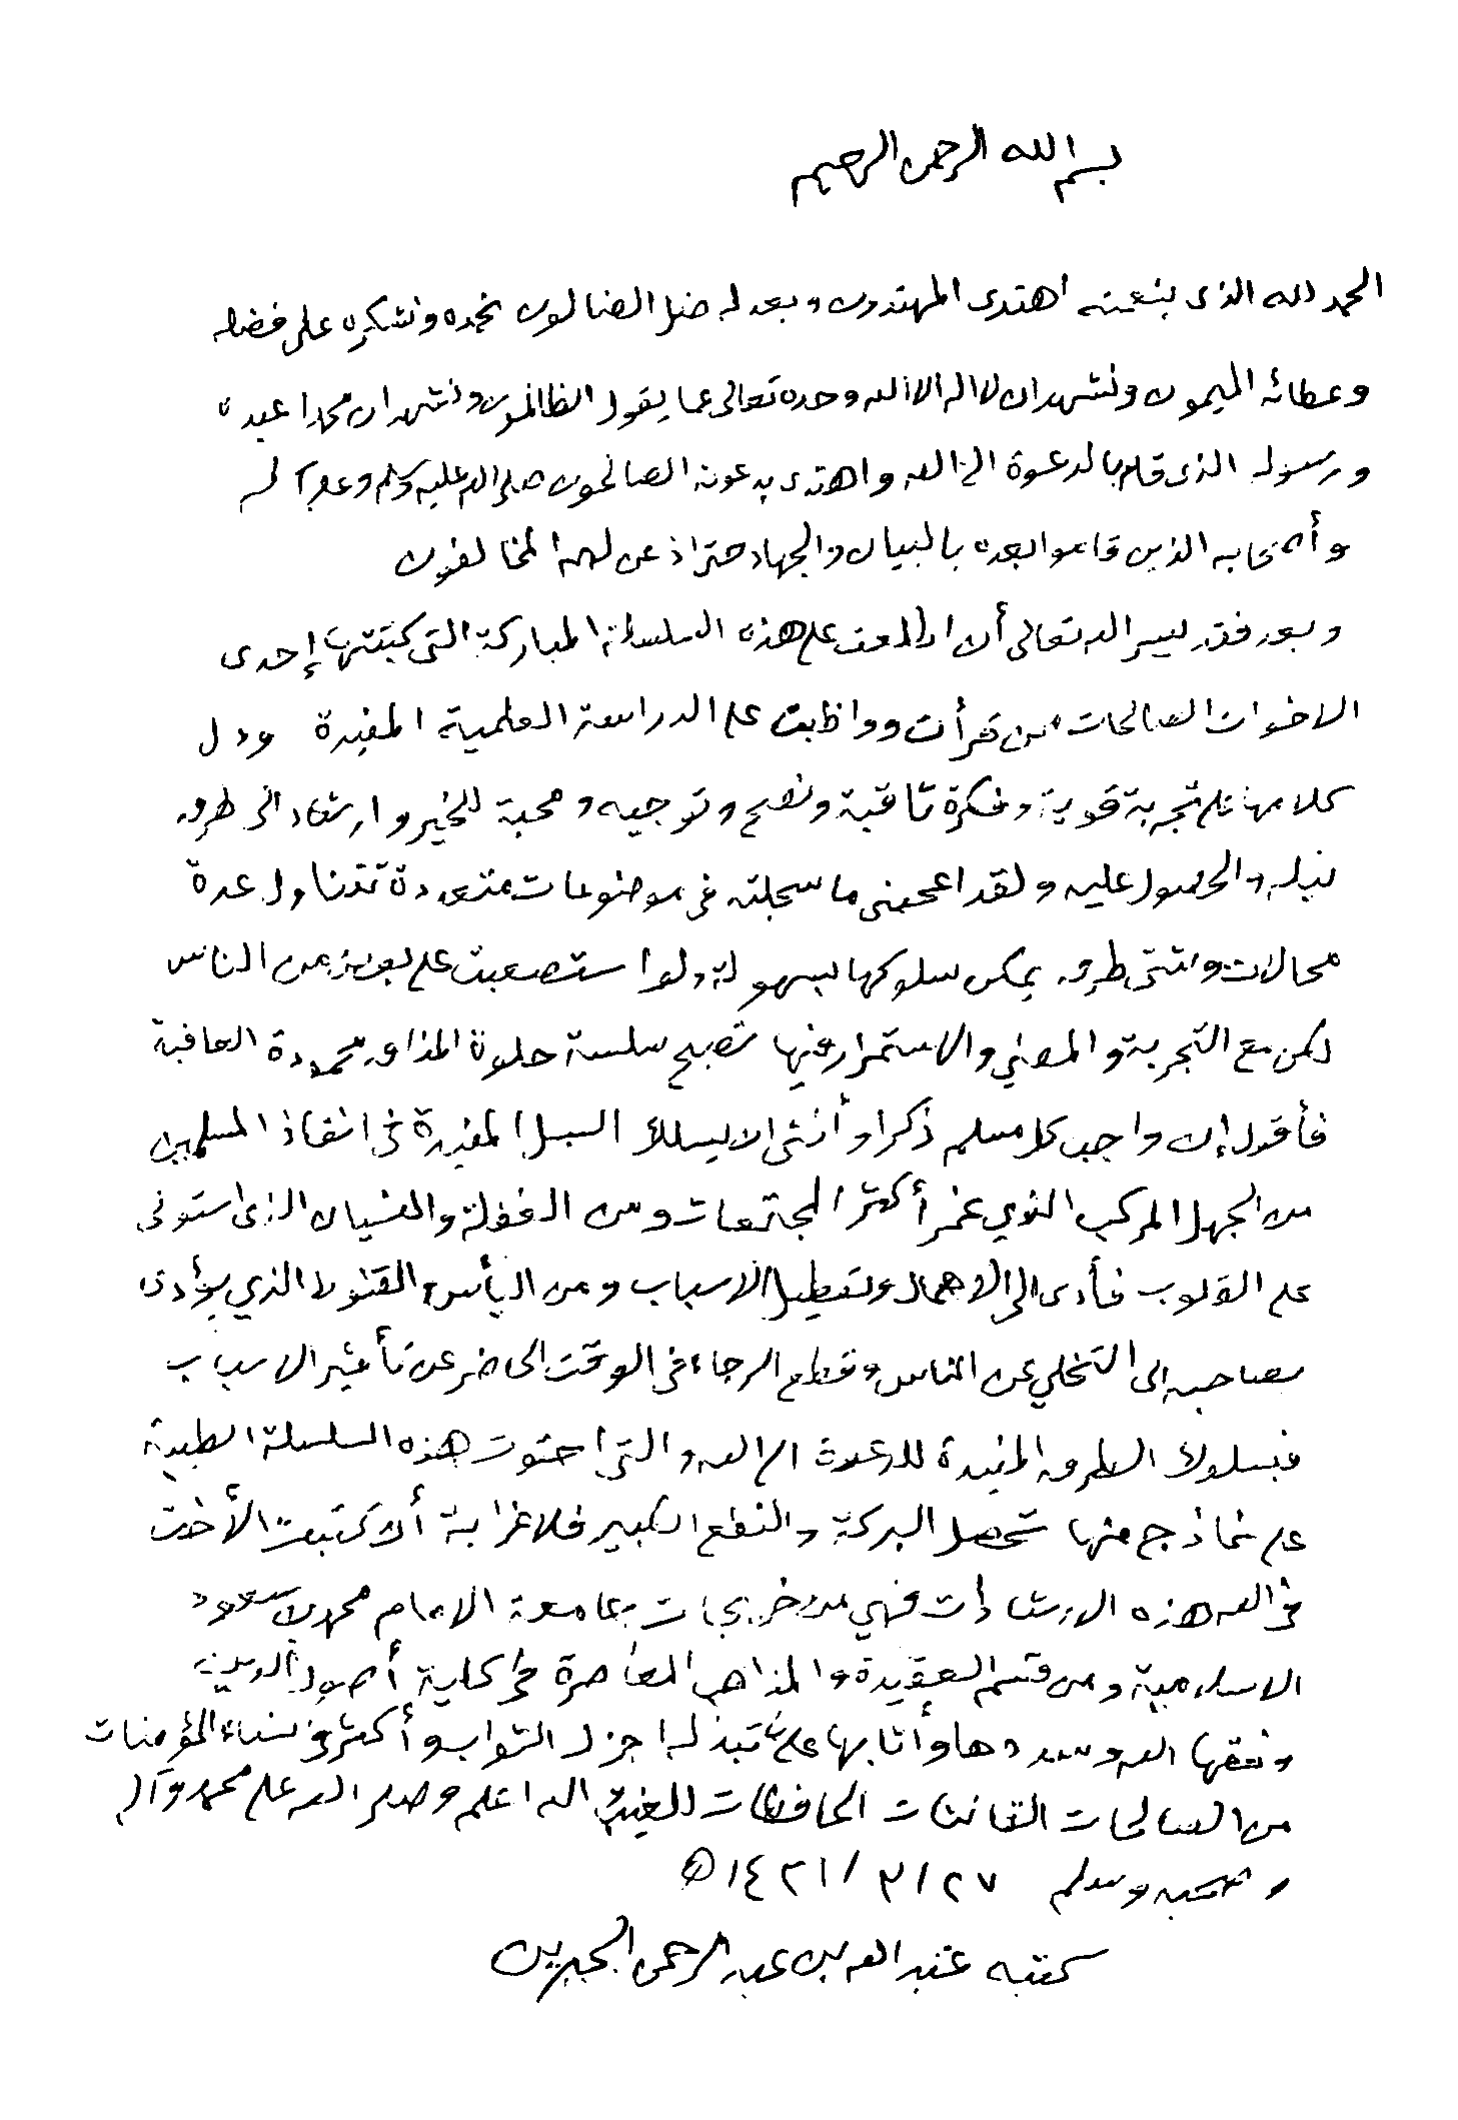 بسم الله الرحمن الرحيم
الحمد لله الذى بنعمته اهتدى المهتدون وبعدله ضل الضالون نحمده ونشكره على فضله
وعطائه الميمون ونشهد ان لا اله الا الله وحده تعالى عما يقول الظالمون ونشهد ان محمدا عبده
ورسوله الذى قام بالدعوة الى الله واهتدى بدعوته الصالحون صلى الله عليه وسلم وعلى آله
وأصحابه الذين قاموا بعده بالبيان والجهاد حتى اذعن لهم المخالفون
وبعد فقد يسر الله تعالى أن اطلعت على هذه السلسلة المباركة التى كتبتها إحدى
الاخوات الصالحات ممن قرأت وواظبت على الدراسة العلمية المفيدة ودل
كلامها على تجربة قوية وفكرة ثاقبة ونصح وتوجيه ومحبة للخير وارشاد الى طرق
نيله والحصول عليه ولقد اعجبنى ما سجلته فى موضوعات متعددة تتناول عدة
مجالات وشتى طرق يمكن سلوكها بسهولة ولو استصعبت على بعض من الناس
لكن مع التجربة والمضي والاستمرار فيها تصبح سلسة حلوة المذاق محمودة العاقبة
فأقول إن واجب كل مسلم ذكر او أنثى ان يسلك السبل المفيدة فى انقاذ المسلمين
من الجهل المركب الذي غمر أكثر المجتمعات ومن الغفلة والنسيان الذى استولى
على القلوب فأدى الى الاهمال وتعطيل الاسباب ومن اليأس والقنوط الذي يؤدى
بصاحبه الى التخلي عن الناس وقطع الرجاء فى الوقت الحاضر عن تأثير الاسباب
فبسلوك الطرق المفيدة للدعوة الى الله والتى احتوت هذه السلسلة الطيبة
على نماذج منها تحصل البركة والنفع الكبير فلا غرابة أن كتبت الأخت
فى الله هذه الارشادات فهي من خريجات جامعة الامام محمد بن سعود
الاسلامية ومن قسم العقيدة والمذاهب المعاصرة فى كلية أصول الدين
ونفع بها الله وسددها وأثابها على ما تبذله اجزل الثواب وأكثر فى نساء المؤمنات
من الصالحات القانتات الحافظات للغيب والله اعلم وصلى الله على محمد وآله
وصحبه وسلم ٢٧ /٣ /١٤٢١هـ
كتبه عبد الله بن عبد الرحمن الجبرين